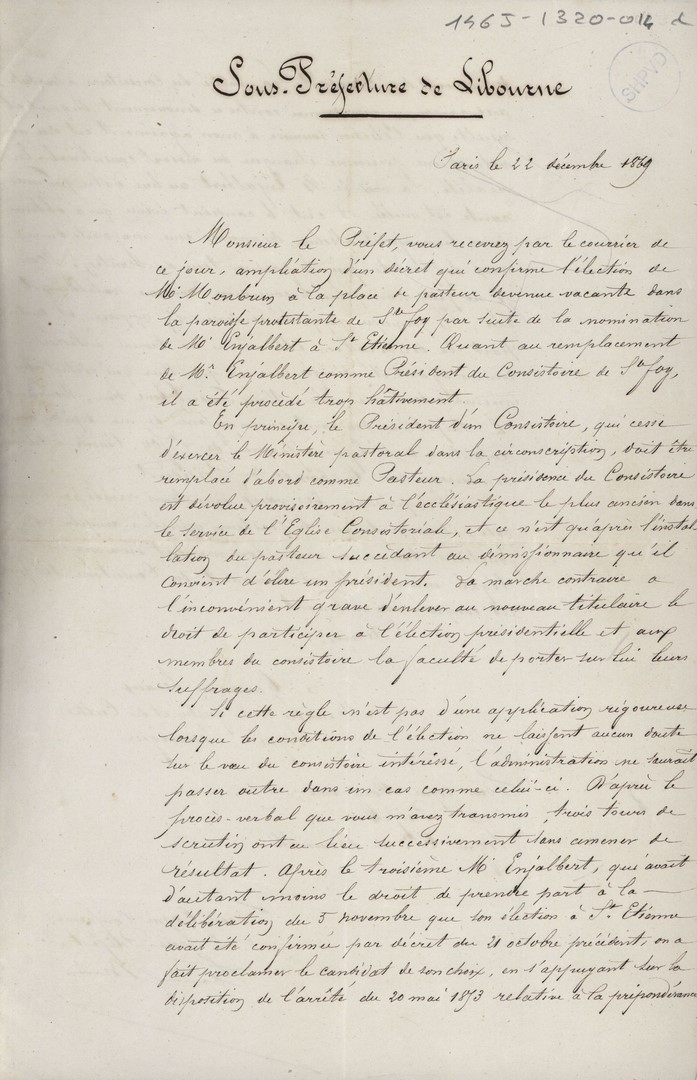 1465-1320-014 d
SHPVD
Sous-Préfecture de Libourne
Paris le 22 décembre 1869
Monsieur le Préfet, vous recevrez par le courrier de
ce jour, ampliation d'un décret qui confirme l'élection de
Mr Monbrun à la place de pasteur devenue vacante dans
la paroisse protestante de Ste Foy par suite de la nomination
de Mr Enjalbert à St Etienne. Quant au remplacement
de Mr. Enjalbert comme Président du Consistoire de Ste Foy,
il a été procédé trop hâtivement.
En principe, le Président d'un Consistoire, qui cesse
d'exercer le Ministère pastoral dans la circonscription, doit être
remplacé d'abord comme Pasteur. La présidence du Consistoire
est dévolue provisoirement à l'ecclésiastique le plus ancien dans
le service de l'Eglise Consistoriale, et ce n'est qu'après l'instal
lation du pasteur succédant au démissionnaire qu'il
convient d'élire un président. La marche contraire a
l'inconvénient grave d'enlever au nouveau titulaire le
droit de participer à l'élection présidentielle et aux
membres du consistoire la faculté de porter sur lui leurs
suffrages.
Si cette règle n'est pas d'une application rigoureuse
lorsque les conditions de l'élection ne laissent aucun doute
sur le vœu du consistoire intéressé, l'administration ne saurait
passer outre dans un cas comme celui-ci. D'après le
procès-verbal que vous m'avez transmis, trois tours de
scrutin ont eu lieu successivement sans amener de
résultat. Après le troisième Mr Enjalbert, qui avait
d'autant moins le droit de prendre part à la
délibération du 5 novembre que son élection à St. Etienne
avait été confirmée par décret du 21 octobre précédent, on a
fait proclamer le candidat de son choix, en s'appuyant sur la
disposition de l'arrêté du 20 mai 1853 relative à la prépondérance